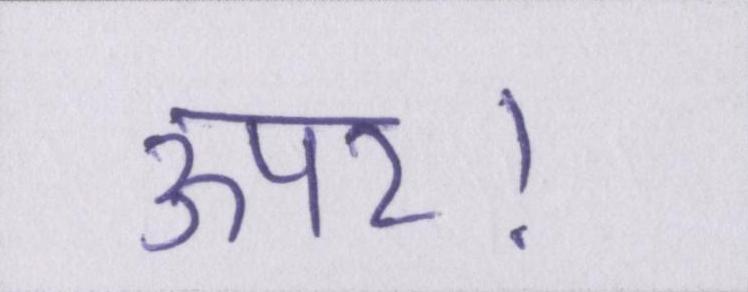 ऊपर!